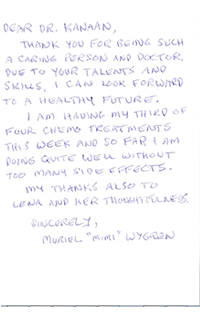 DEAR DR. KANAAN,
THANK YOU FOR BEING SUCH
A CARING PERSON AND DOCTOR.
DUE TO YOUR TALENTS AND
SKILLS, I CAN LOOK FORWARD
TO A HEALTHY FUTURE.
I AM HAVING MY THIRD OF
FOUR CHEMO TREATMENTS
THIS WEEK AND SO FAR I AM
DOING QUITE WELL WITHOUT
TOO MANY SIDE EFFECTS.
MY THANKS ALSO TO
LENA AND HER THOUGHTFULNESS.
SINCERELY,
MURIEL "MIMI" WYGREN